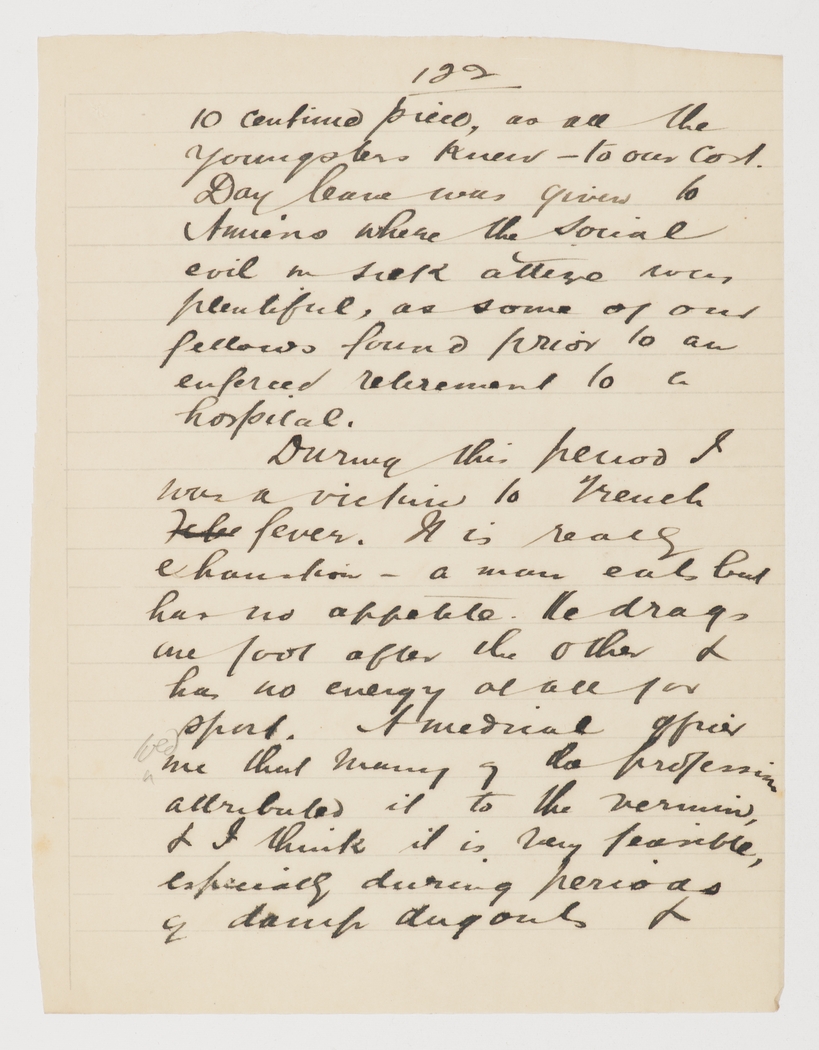 122
10 centime piece, as all the
youngsters knew – to our cost.
Day leave was given to
Amiens where the social
evil in silk attire was
plentiful, as some of our
fellows found prior to an
enforced retirement to a
hospital.
During this period I
was a victim to Trench
fever. It is really
exhaustion – a man eats but
has no appetite. He drags
one foot after the other &
has no energy at all for
sport. A medical officer
told
me that many of the profession
attributed it to the vermin,
& I think it is very feasible,
especially during periods
of damp dugouts &